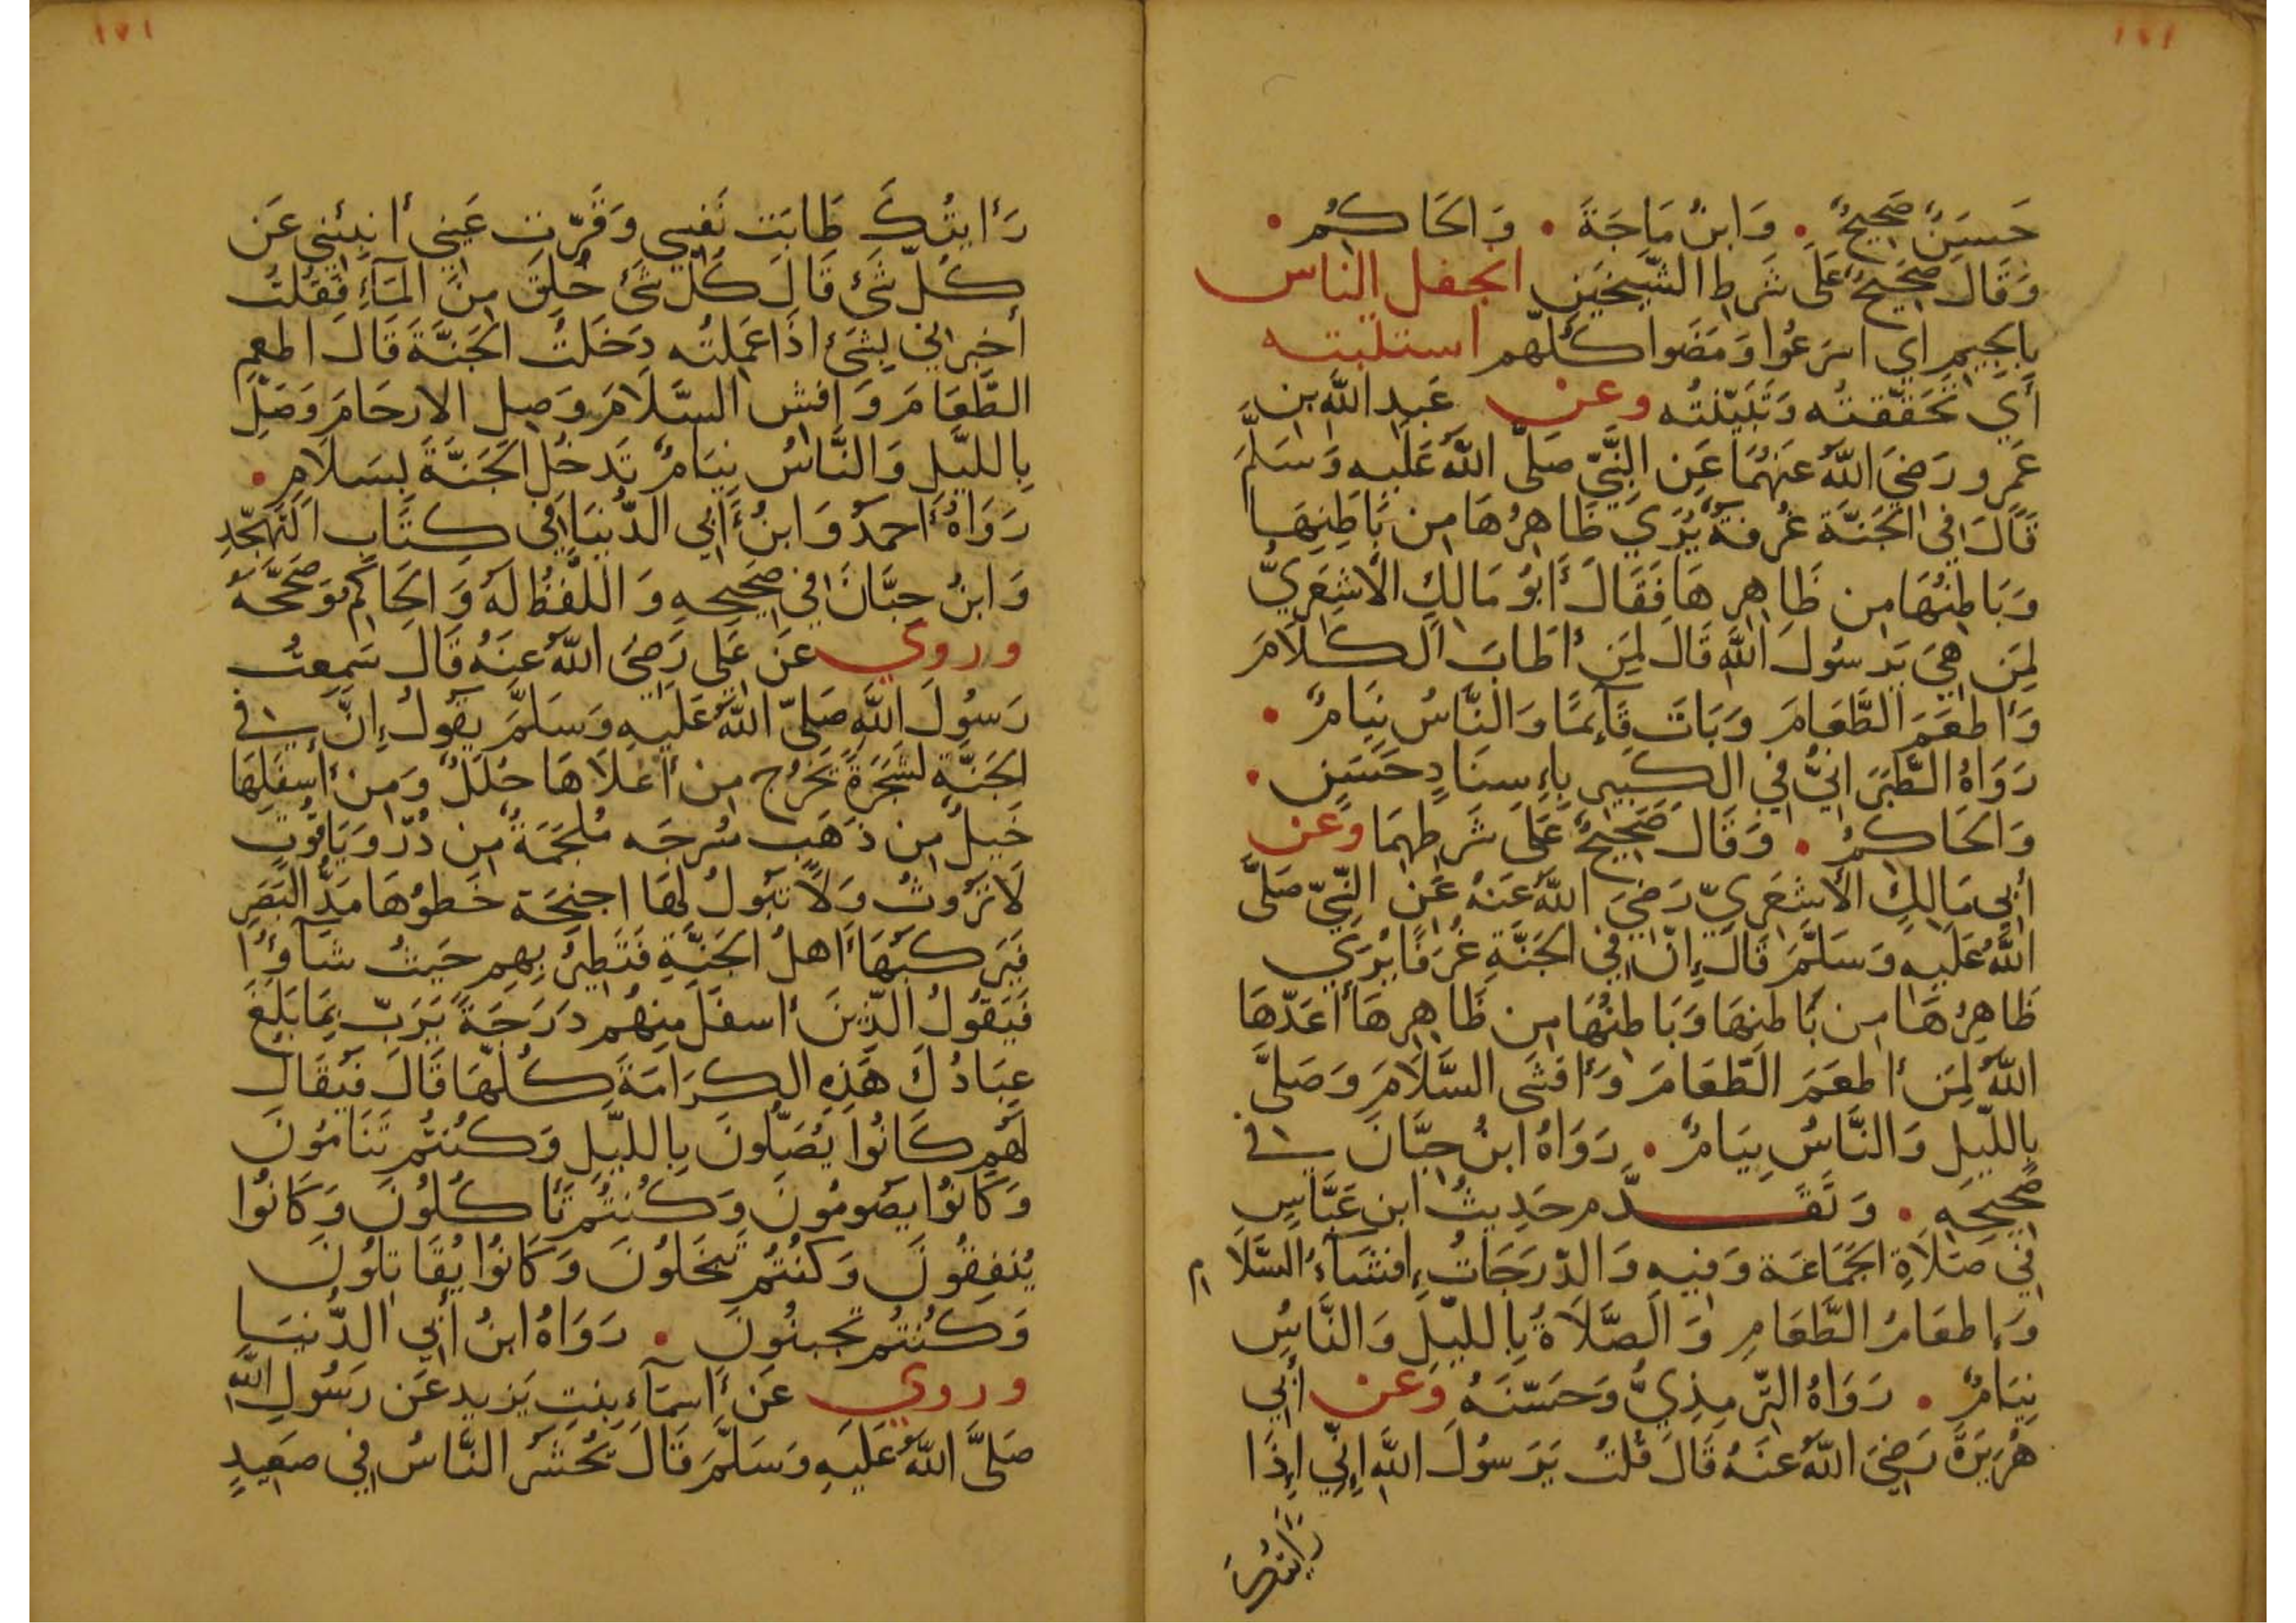 ١٧١
حَسَنٌ صَحِيحٌ . وَابنُ مَاجَةَ . وَالحَاكِمُ .
وَقَالَ صَحِيحٌ عَلَى شَرطِ الشَّيخَينِ انجفل الناس
بِالجِيمِ اي اسرَعُوا وَمَضَوا كُلّهم استثبته
أَي تَحَقّقتُه وَتَبَيّنتُه وعن عَبدِ اللهِ بنِ
عَمرٍو رَضِيَ اللهُ عَنهُمَا عَنِ النَّبِيِّ صَلَّى اللهُ عَلَيهِ وَسَلَّمَ
قَالَ فِي الجَنَّةِ غُرفَةٌ يُرَي ظَاهِرُهَا مِن بَاطِنِهَا
وَبَاطِنُهَا مِن ظَاهِرِهَا فَقَالَ أَبُو مَالِكٍ الأَشعَرِيُّ
لِمَن هِيَ يَرَسُولَ اللهِ قَالَ لِمَن أَطَابَ الكَلَامَ
وَأَطعَمَ الطَّعَامَ وَبَاتَ قَآئِمًا وَالنَّاسُ نِيَامٌ .
رَوَاهُ الطَّبَرَانِيُّ فِي الكَبِيرِ بِإِسنَادٍ حَسَنٍ .
وَالحَاكِمُ . وَقَالَ صَحِيحٌ عَلَى شَرطِهِمَا وعن
أَبِي مَالِكٍ الأَشعَرِيِّ رَضِيَ اللهُ عَنهُ عَنِ النَّبِيِّ صَلَّى
اللهُ عَلَيهِ وَسَلَّمَ قَالَ إِنَّ فِي الجَنَّةِ غُرَفًا يُرَي
ظَاهِرُهَا مِن بَاطِنِهَا وَبَاطِنُهَا مِن ظَاهِرِهَا أَعَدَّهَا
اللهُ لِمَن أَطعَمَ الطَّعَامَ وَأَفشَى السَّلَامَ وَصَلَّى
بِاللَّيلِ وَالنَّاسُ نِيَامٌ . رَوَاهُ ابنُ حِبَّانَ في
صَحِيحِهِ . وَتَقَدَّم حَدِيثُ ابنِ عَبَّاسٍ
فِي صَلَاةِ الجَمَاعَة وَفِيهِ وَالدّرَجَاتُ إِفشَآءُ السَّلَام
وَإِطعَامُ الطَّعَامِ وَالصَّلَاةُ بِاللَّيلِ وَالنَّاسُ
نِيَامٌ . رَوَاهُ التِّرمِذِيُّ وَحَسَّنَهُ وعن أَبِي
هُرَيرَةَ رَضِيَ اللهُ عَنهُ قَالَ قُلتُ يَرَسُولَ اللهِ إِنِّي إِذَا
رَأَيتُكَ
١٧١
رَأَيتُكَ طَابَت نَفسِي وَقَرَّت عَينِي أَنبِئنِي عَن
كُلِّ شَئٍ قَالَ كُلُّ شَئٍ خُلِقَ مِنَ المَآءِ فَقُلتُ
أَخبِرنِي بِشَئٍ اذَا عَمِلتُه دَخَلتُ الجَنَّةَ قَالَ اطعِمِ
الطَّعَامَ وَافشِ السَّلَامَ وَصِلِ الارحَامَ وَصَلِّ
بِاللَّيلِ وَالنَّاسُ نِيَامٌ تَدخُلِ الجَنَّةَ بِسَلَامٍ .
رَوَاهُ أَحمَدُ وَابنُ أَبِي الدُّنيَا فِي كِتَابِ التَّهَجُّدِ
وَابنُ حِبَّانَ فِي صَحِيحِهِ وَاللَّفظُ لَهُ وَالحَاكِمُ وَصَحَّحَهُ
وروي عَن عَلِي رَضِيَ اللهُ عَنهُ قَالَ سَمِعتُ
رَسُولَ اللهِ صَلَّى اللهُ عَلَيهِ وَسَلَّمَ يَقُولُ إِنَّ في
الجَنَّةِ لَشَجَرَةً تَخرُج مِن أَعلَاهَا حُلَلٌ وَمِن أَسفَلِهَا
خَيلٌ مِن ذَهَبٍ مُسرجَه مُلجَمَةٌ مِن دُرّ وَيَاقُوتٍ
لَا تَرُوثُ وَلَا تَبُولُ لَهَا اجنِحَة خَطوُهَا مَدَّ البَصَرِ
فَيَركَبُهَا أَهلُ الجَنَّةِ فَتَطِيرُ بِهِم حَيثُ شَآوُا
فَيَقُولُ الَّذِينَ أَسفَلَ مِنهُم دَرَجَةً يَرَبّ بِمَا بَلَغَ
عِبَادُكَ هَذِهِ الكَرَامَةَ كُلَّهَا قَالَ فَيُقَالُ
لَهُم كَانُوا يُصَلُّونَ بِاللَّيلِ وَكُنتُم تَنَامُونَ
وَكَانُوا يَصُومُونَ وَكُنتُم تَأكُلُونَ وَكَانُوا
يُنفِقُونَ وَكُنتُم تَبخَلُونَ وَكَانُوا يُقَاتِلُونَ
وَكُنتُم تَجبنُونَ . رَوَاهُ ابنُ أَبِي الدُّنيَا
وروي عَن أَسمَآءَ بِنتِ يَزِيد عَن رَسُولِ اللهِ
صَلَّى اللهُ عَلَيهِ وَسَلَّمَ قَالَ يُحشَرُ النَّاسُ فِي صَعِيدٍ